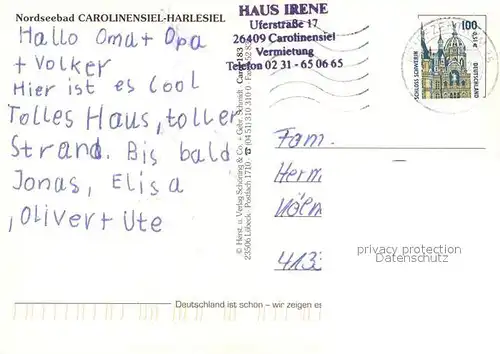 Nordseebad CAROLINENSIEL-HARLESIEL
Hallo Oma + Opa
+ Volker
Hier ist es cool
Tolles Haus, toller
Strand. Bis bald
Jonas, Elisa
, Oliver + Ute
HAUS IRENE
Uferstraße 17
26409 Carolinensiel
Vermietung
Telefon 02 31 - 65 06 65
© Herst. u. Verlag Schöning & Co. + Gebr. Schmidt
23506 Lübeck, Postfach 1710 ☎ (04 51) 310 310
100
0,51€
DEUTSCHLAND
SCHLOSS SCHWERIN
Fam.
Herm
Köln
413
privacy protection
Datenschutz
Deutschland ist schön – wir zeigen es